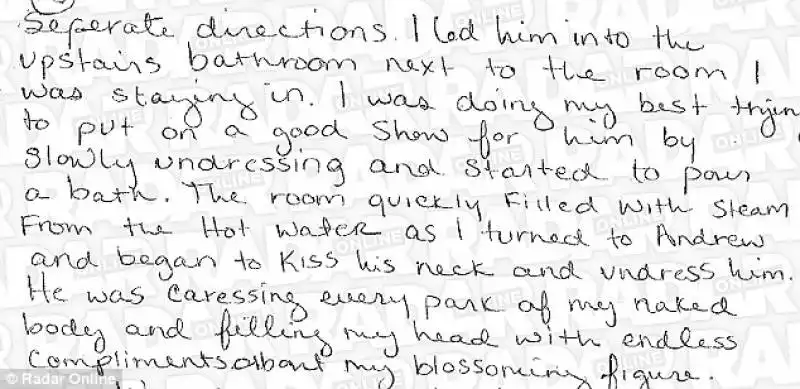 Seperate directions. I led him into the
upstairs bathroom next to the room I
was staying in. I was doing my best tryin
to put on a good show for him by
slowly undressing and started to pour
a bath. The room quickly filled with steam
From the Hot water as I turned to Andrew
and began to kiss his neck and undress him.
He was caressing every park of my naked
body and filling my head with endless
compliments about my blossoming figure.
© Radar Online